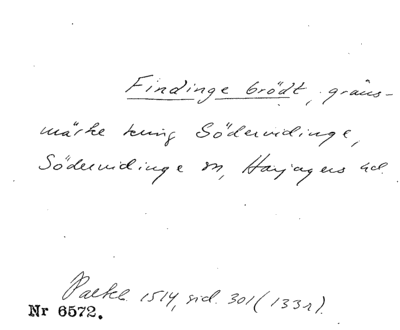 Findinge brödt, gräns-
märke kring Södervidinge,
Södervidinge sn, Harjagers hd.
Palteb. 1514, sid. 301 (133r).
Nr 6572.